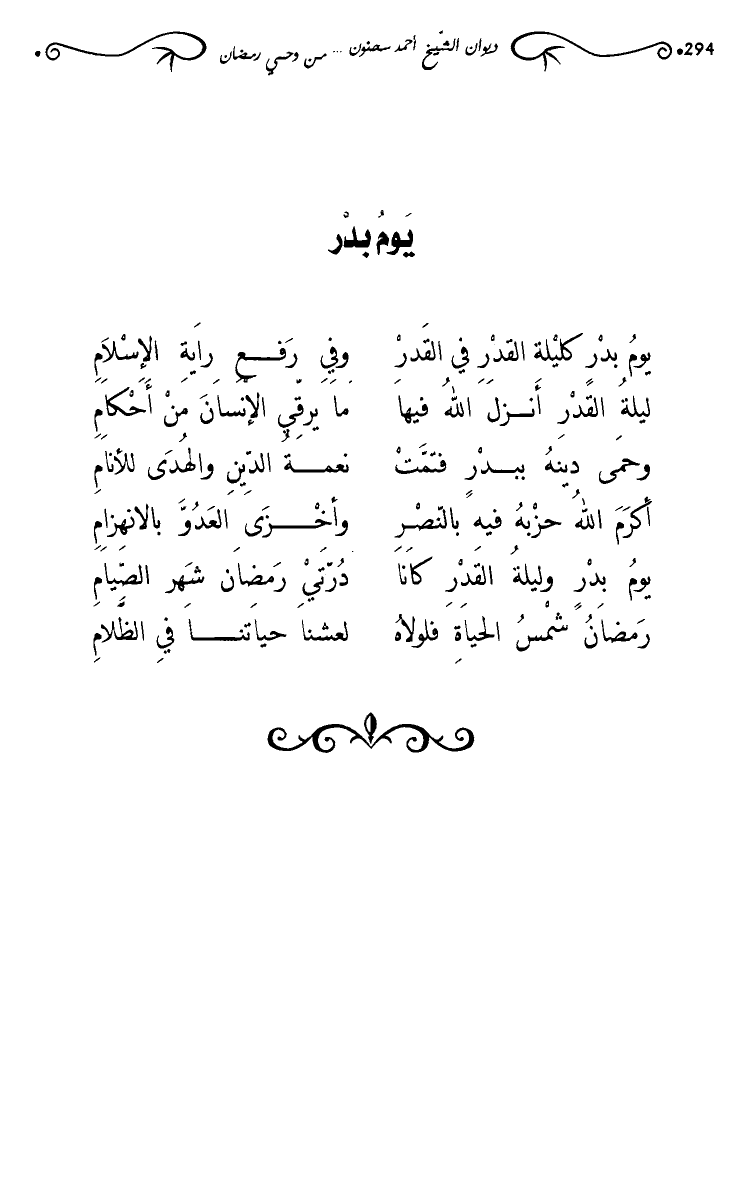 294 ديوان الشّيخ أحمد سحنون ... من وحي رمضان
يَومُ بدْر
يومُ بدْرٍ كليْلة القدْرِ في القَدرْ وفي رَفـــعِ رايَةِ الإسْلاَمِ
ليلةُ القَدْرِ أَنـــزلَ اللهُ فيها مَا يرقّي الإنْسانَ مِنْ أَحْكامِ
وحمَى دِينهُ ببـــدْرٍ فتمَّتْ نعمـــةُ الدّينِ والهُدَى للأنامِ
أكرَمَ اللهُ حزْبهُ فيه بالنّصْرِ وأخْـــزَى العَدُوَّ بالانهزامِ
يومُ بدْرٍ وليلةُ القَدْرِ كَانَا دُرّتيْ رَمضانَ شهَر الصِّيامِ
رَمَضانُ شمْسُ الحياَةِ فلولاهُ لعشنا حياتنـــا فيِ الظَّلامِ